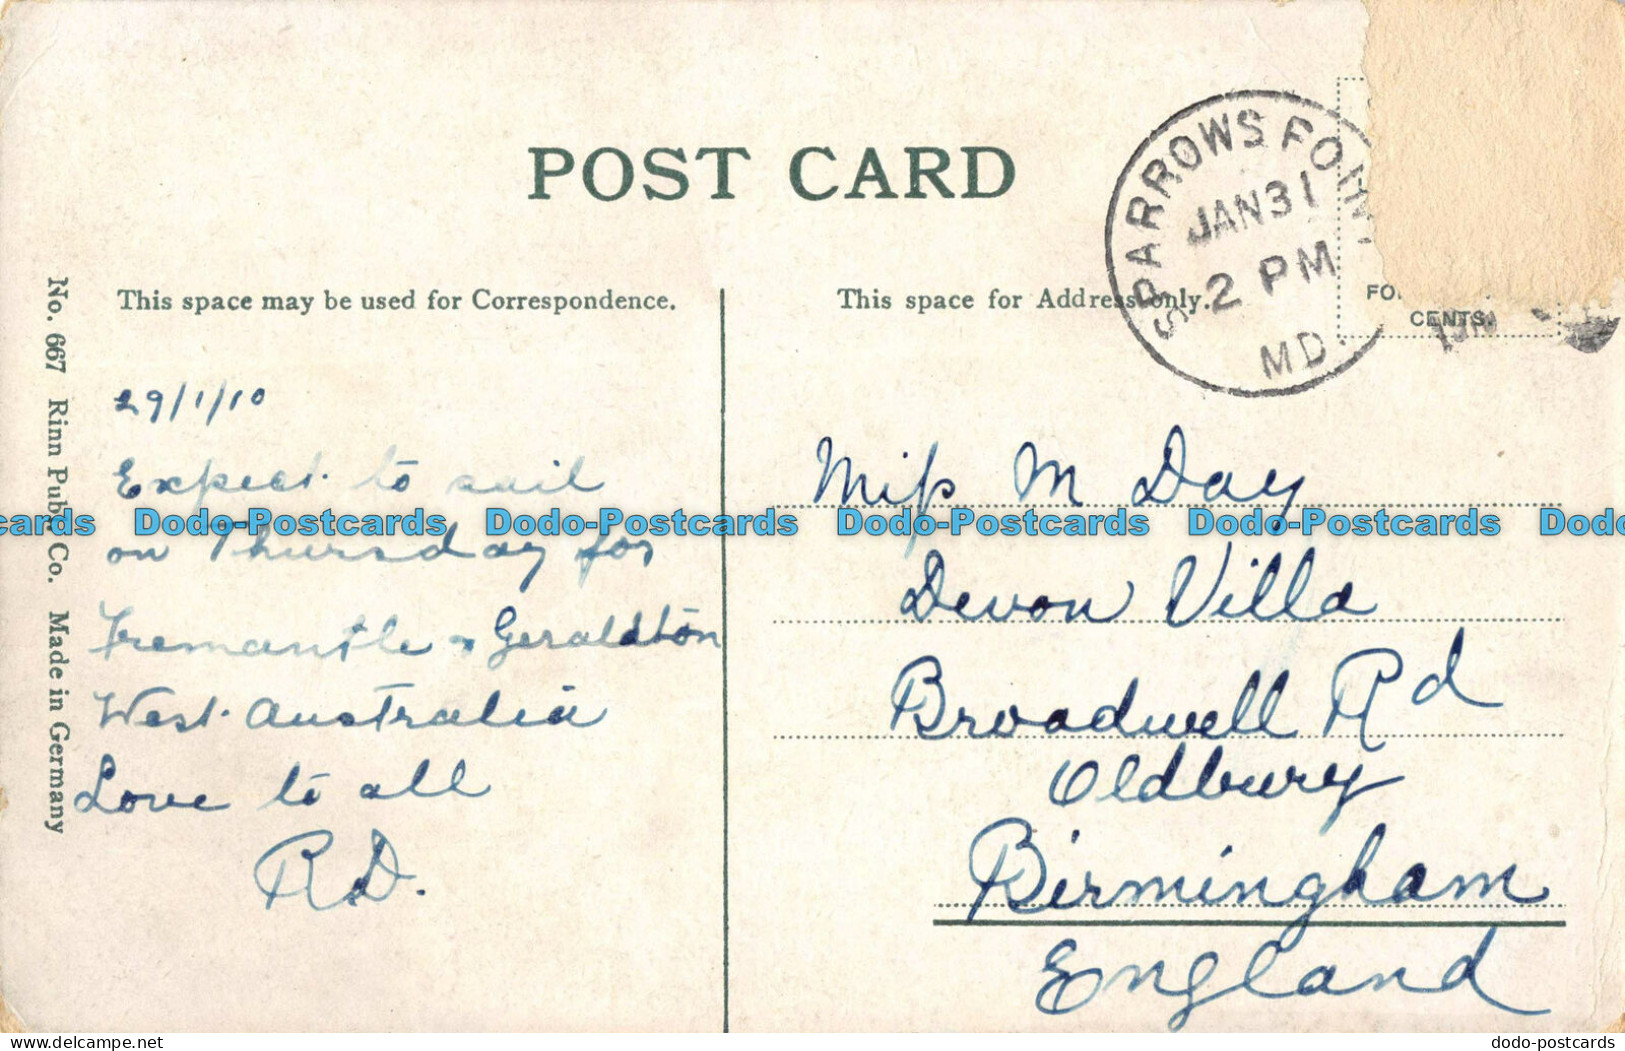 POST CARD
SPARROWS POINT
JAN 31
2 PM
MD.
CENTS.
This space may be used for Correspondence.
This space for Address only.
29/1/10
Expect to sail
on Thursday for
Fremantle & Geraldton
West Australia
Love to all
R.D.
Miss M Day
Devon Villa
Broadwell Rd
Oldbury
Birmingham
England
No. 667 Rinn Publ. Co. Made in Germany
cards Dodo-Postcards Dodo-Postcards Dodo-Postcards Dodo-Postcards Dodo
delcampe.net
dodo-postcards